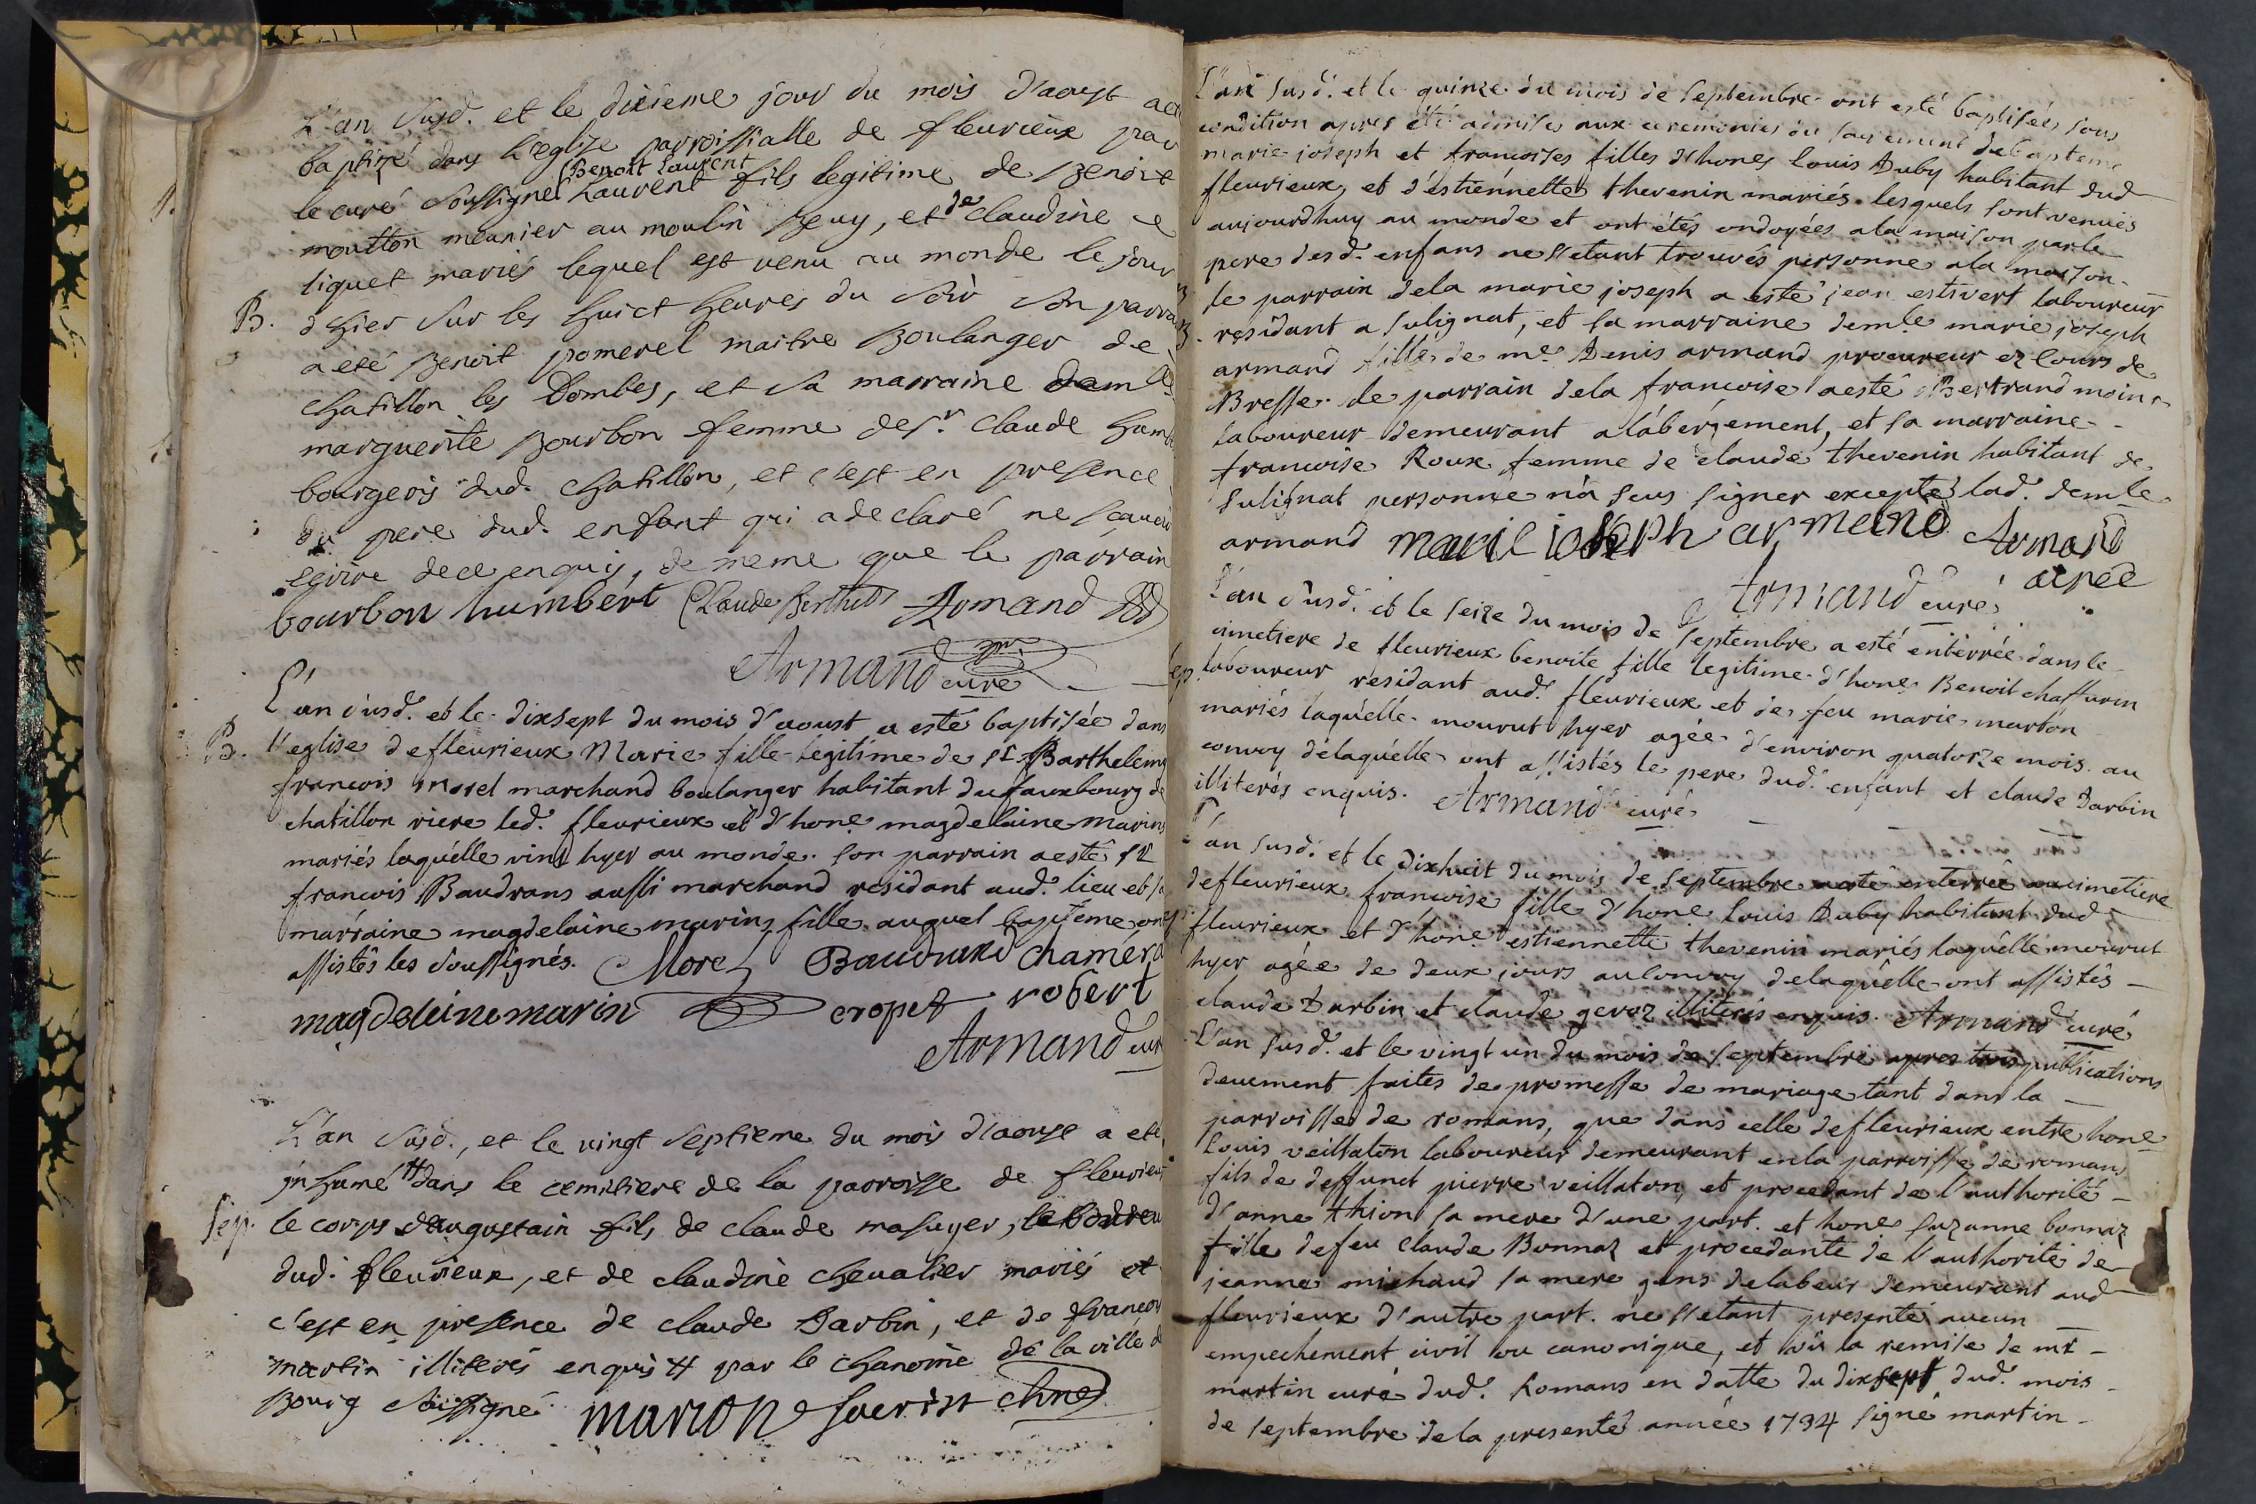 L'an susd. et le dixieme jour du mois d'aoust a eté
baptizé dans l'eglize parroissialle de fleurieux par
le curé soussigné (Benoit Laurent
Laurent fils legitime de Benoit
moutton meunier au moulin Beuy, et de claudine
liquet mariés lequel est venu au monde le jour
B. d'hier sur les huict heures du soir son parra
a eté Benoit pomerel maitre Boulanger de
chatillon les Dombes, et sa marraine dam
marguerite Bourbon femme de sr. Claude humb
bourgeois dud. chatillon, et c'est en presence
du pere dud. enfant qui a declaré ne scavoir
ecrire de ce enquis, de meme que le parrain
bourbon humbért Claude Berthet Armand
Armand curé
L'an susd. et le dixsept du mois d'aoust a esté baptisée dans
B. l'eglise de fleurieux Marie fille legitime de sr Barthelemy
francois Morel marchand boulanger habitant du fauxbourg de
chatillon riere led. fleurieux et d'hone magdelaine marin
mariés laquélle vint hyer au monde. son parrain a esté sr
francois Baudrans aussi marchand residant aud. lieu et sa
marraine magdelaine marin fille auquel baptéme ont
assistés les soussignés. Morel Baudrand chamerd
magdeleine marin cropet robert
Armand cur
L'an susd., et le vingt septieme du mois d'aoust a eté
inhumé # dans le cemitiere de la parroisse de fleurieux
Sep. le corps d'augustain fils de claude masuyer,
dud. fleurieux, et de claudine chevalier mariés et
c'est en presence de claude Darbin, et de francois
martin illiterés enquis # par le chanoine de la ville de
Bourg soussigné marion sacrist chne
L'an susd. et le quinze du mois de septembre ont esté baptisées sous
condition apres été admises aux ceremonies du sacrement de bapteme
marie joseph et francoises filles d'hones louis Duby habitant dud
fleurieux, et d'estiénnette thevenin mariés. lesquels sont venues
aujourdhuy au monde et ont étés ondoyées a la maison par le
pere desd. enfans ne s'etant trouvés personne a la maison.
le parrain de la marie joseph a esté jean estivert laboureur
residant a sulignat, et la marraine demle marie joseph
armand fille de me. Denis armand procureur ez cours de
Bresse. le parrain de la francoise a esté Bertrand moin
laboureur demeurant a l'abérgement, et sa marraine
francoise Roux femme de claude thevenin habitant de
sulignat personne n'a sceu signer excepté lad. demle
armand marie joseph armand Armand
Armand curé
L'an susd. et le seize du mois de septembre a esté entérrée dans le
Sep cimetiere de fleurieux benoite fille legitime d'hone Benoit chaffurin
laboureur residant aud. fleurieux et de feu marie marbon
mariés laquélle mourut hyer agée d'environ quatorze mois. au
convoy de laquélle ont assistés le pere dud. enfant et claude Darbin
illiterés enquis. Armand curé
L'an susd. et le dixhuit du mois de septembre a esté enterrée au cimetiere
de fleurieux francoise fille d'hone louis Duby habitant dud
fleurieux et d'hone estiennette thevenin mariés laquélle mourut
hyer agée de deux jours au convoy de laquélle ont assistés
claude Darbin et claude gevoz illiterés enquis. Armand curé
L'an susd. et le vingt un du mois de septembre apres trois publications
deuement faites de promesse de mariage tant dans la
parroisse de romans, que dans celle de fleurieux entre hone
louis veillaton laboureur demeurant en la parroisse de romans
fils de deffunct pierre veillaton, et procedant de l'authorité
d'anne thion sa mere d'une part. et hone suzanne bonnaz
fille de feu claude Bonnaz et procedante de l'authorité de
jeanne michaud sa mere gens de labeur demeurant aud
fleurieux d'autre part. ne s'etant presenté aucun
empechement civil ou canonique, et vû la remise de mr
martin curé dud. Romans en datte du dixsept dud. mois
de septembre de la presente année 1734 signé martin